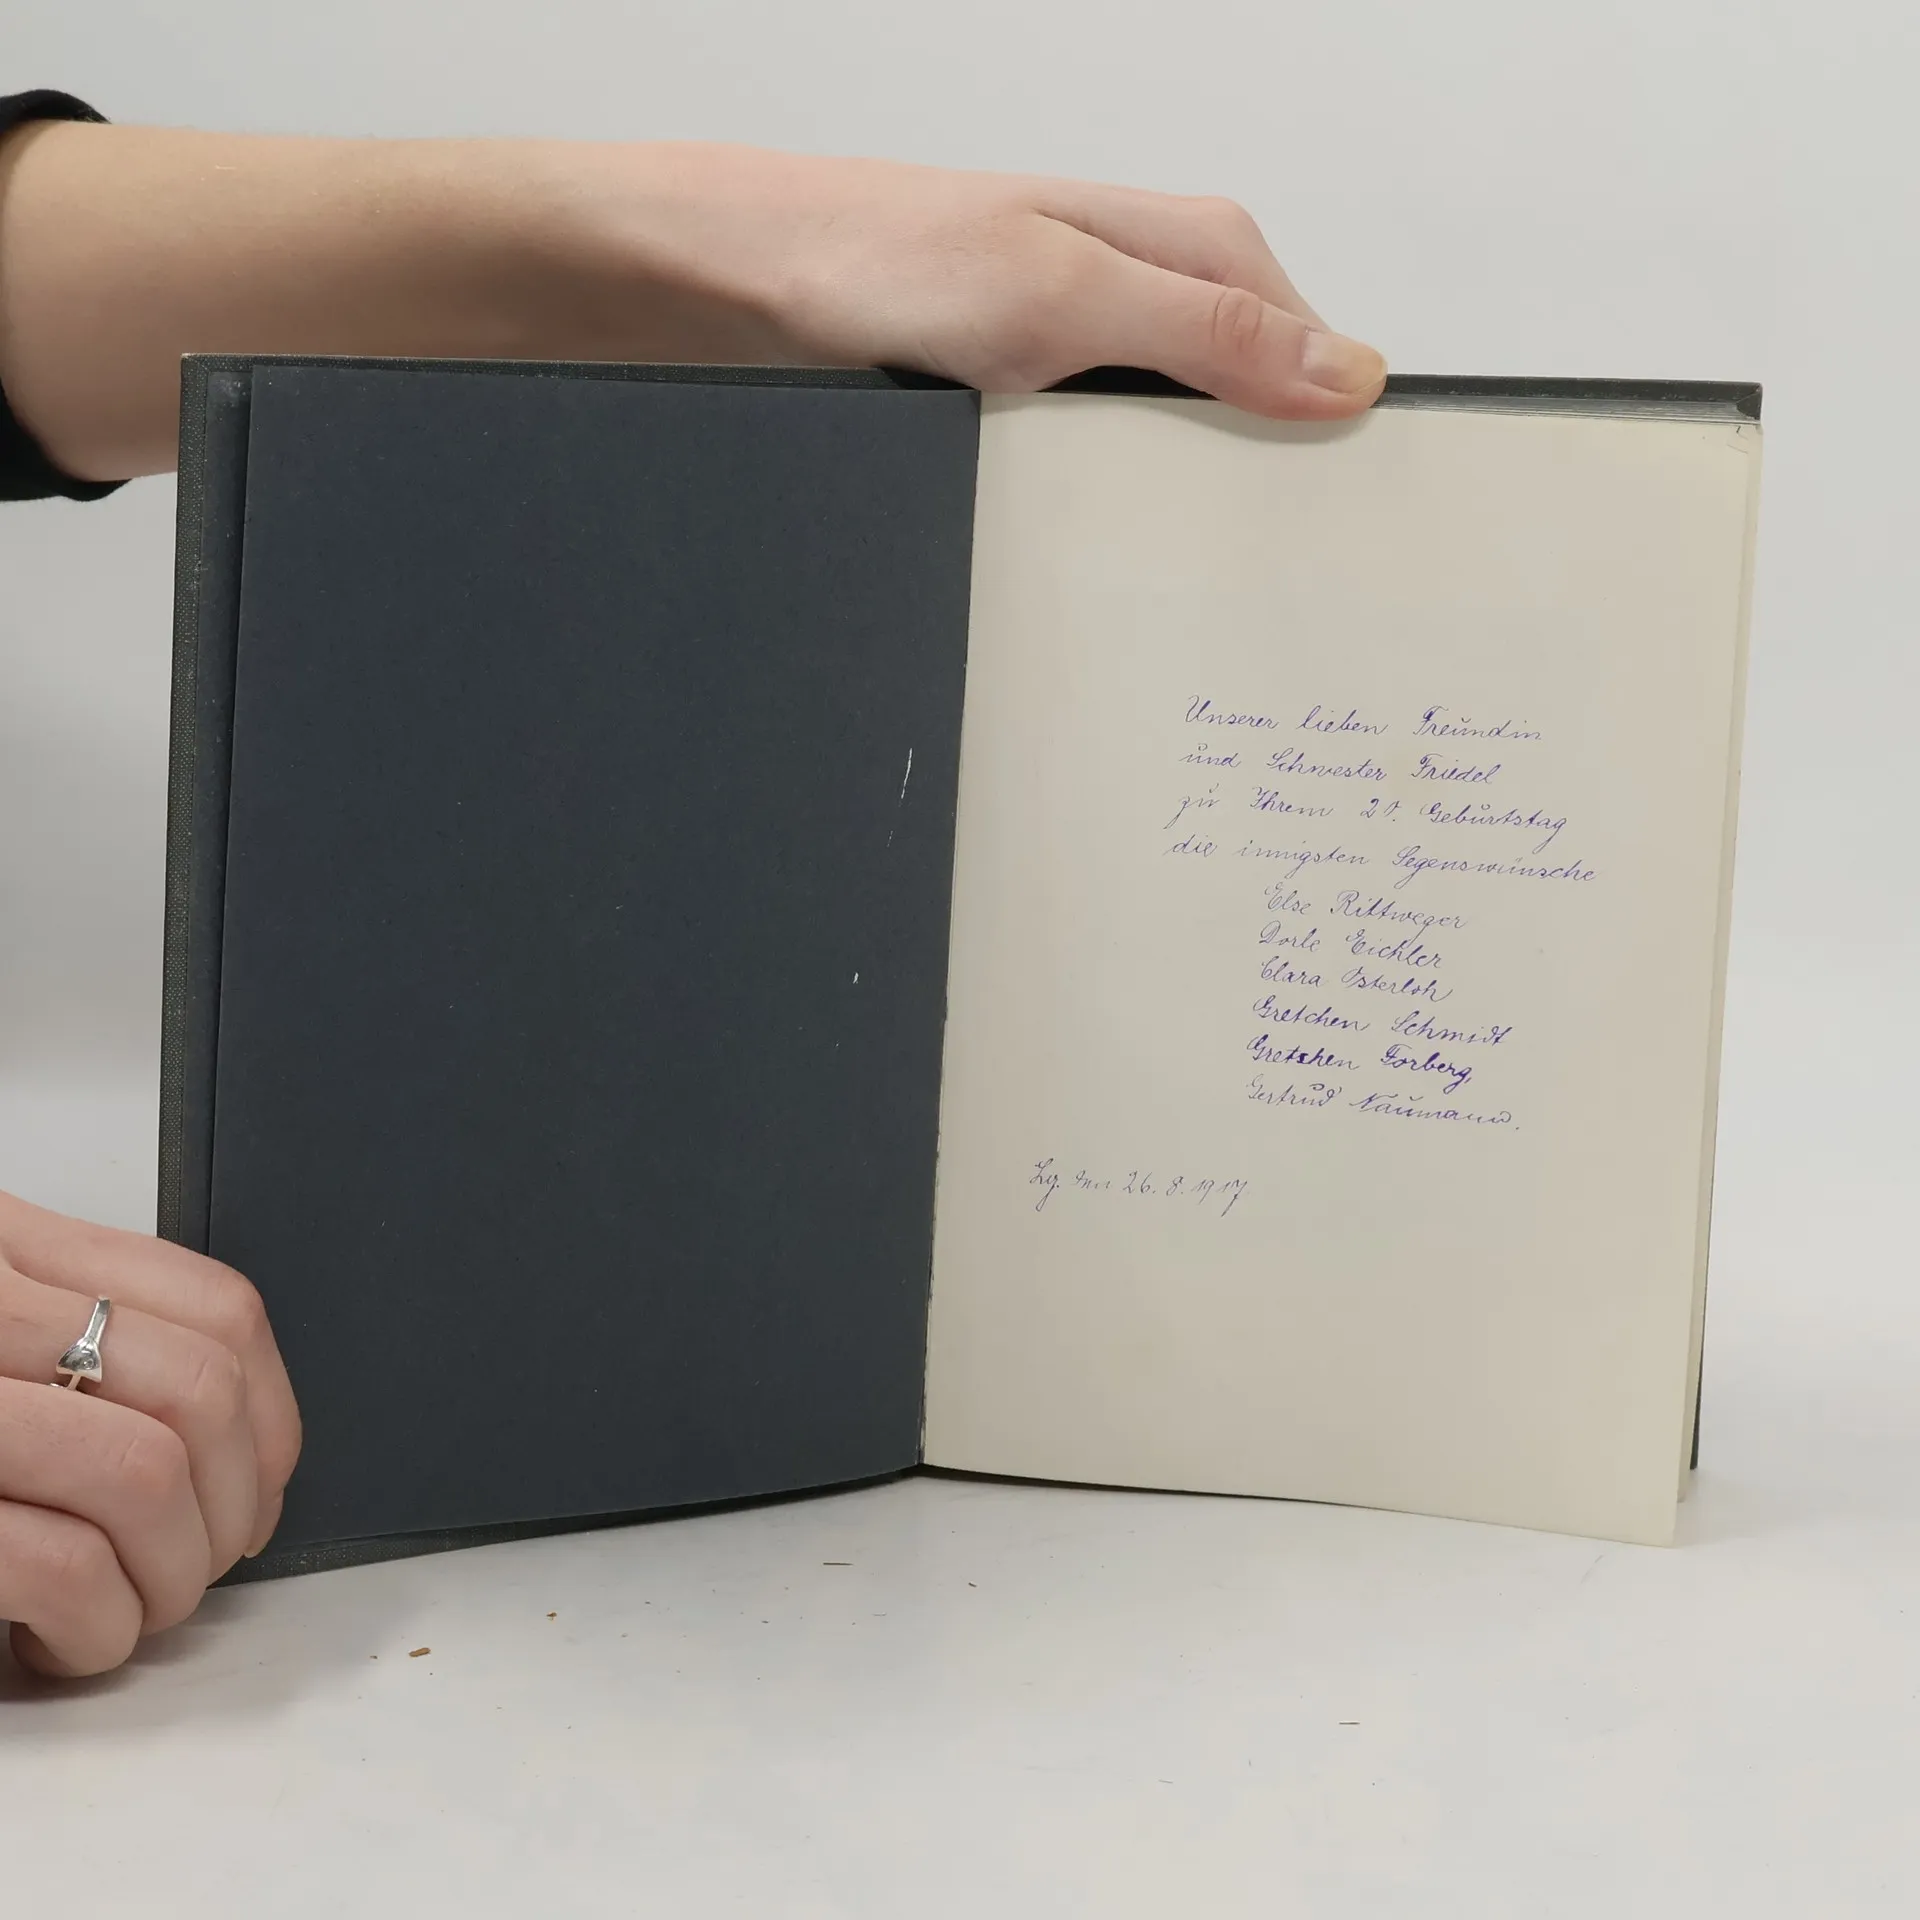 Unserer lieben Freundin
und Schwester Friedel
zu Ihrem 20. Geburtstag
die innigsten Segenswünsche
Else Rittweger
Dorle Eichler
Clara Osterloh
Gretchen Schmidt
Gretchen Forberg,
Gertrud Naumann.
den 26. 8. 1917